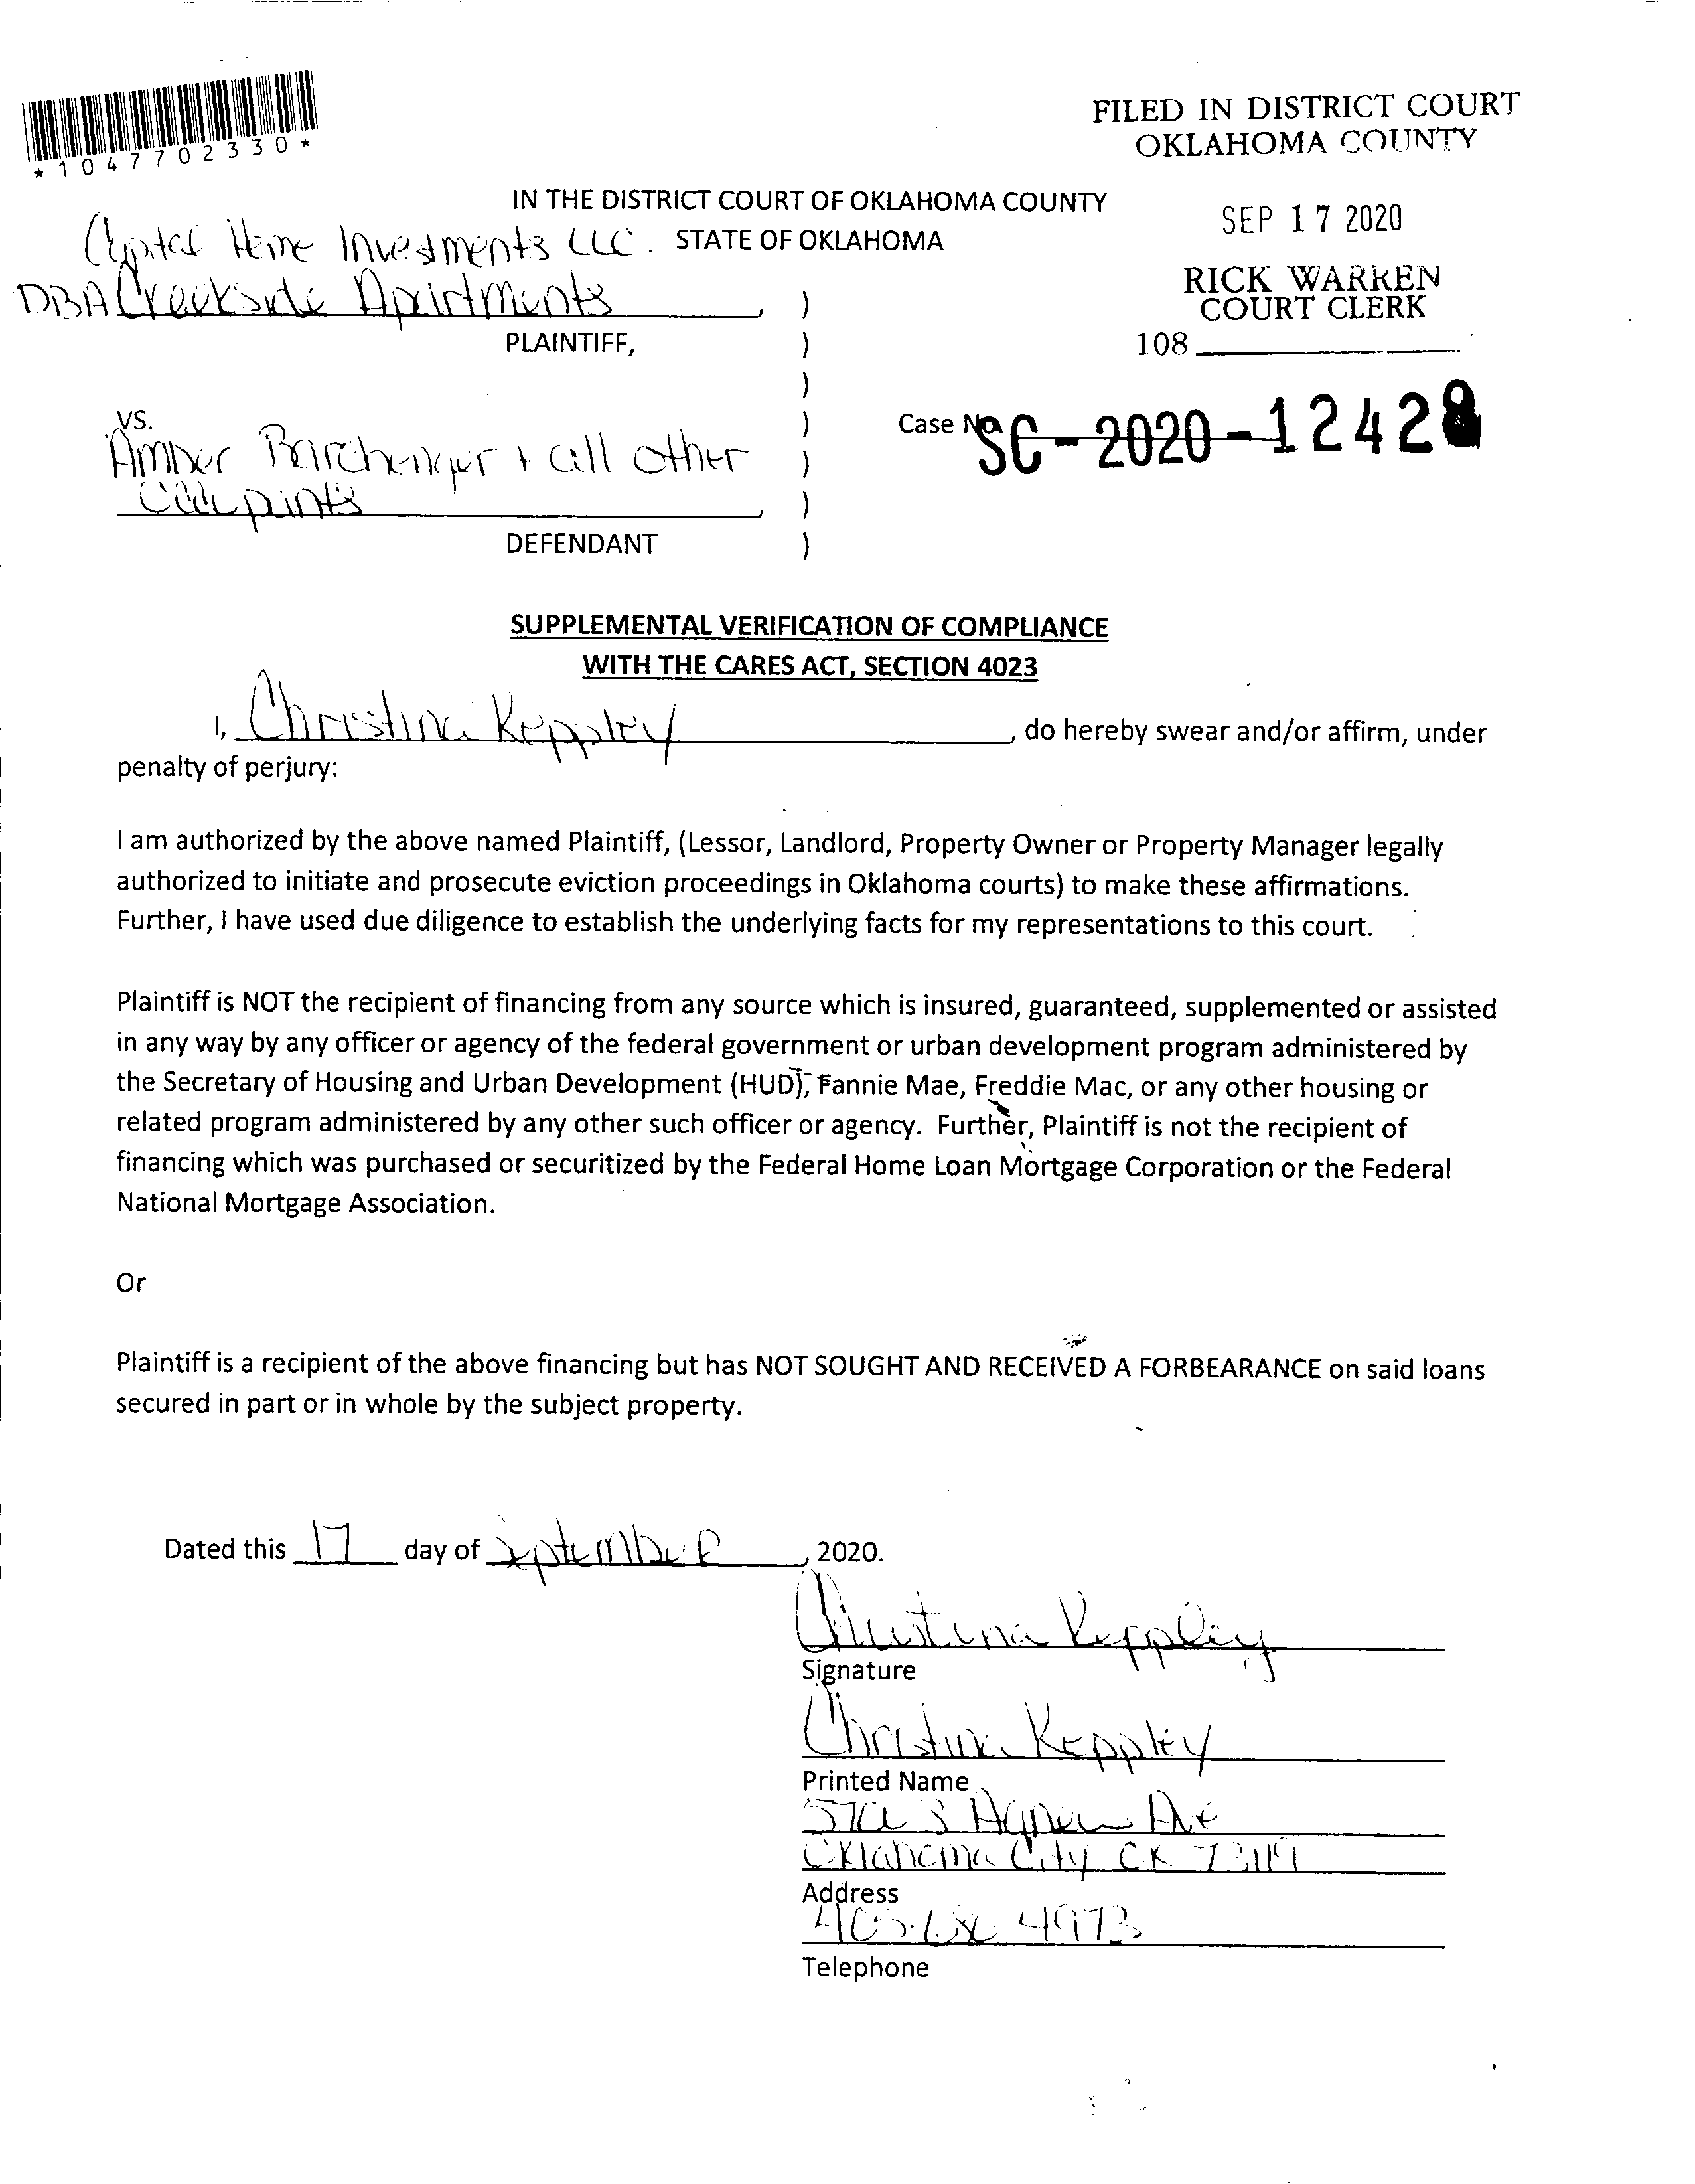 *1047702330*
FILED IN DISTRICT COURT
OKLAHOMA COUNTY
IN THE DISTRICT COURT OF OKLAHOMA COUNTY
STATE OF OKLAHOMA
SEP 17 2020
RICK WARREN
COURT CLERK
108
Capital Home Investments LLC.
DBA Creekside Apartments, )
PLAINTIFF, )
)
vs. )
Case No. SC-2020-12428
Amber + all other )
, )
DEFENDANT )
SUPPLEMENTAL VERIFICATION OF COMPLIANCE
WITH THE CARES ACT, SECTION 4023
I, Christina Keppley, do hereby swear and/or affirm, under
penalty of perjury:
I am authorized by the above named Plaintiff, (Lessor, Landlord, Property Owner or Property Manager legally
authorized to initiate and prosecute eviction proceedings in Oklahoma courts) to make these affirmations.
Further, I have used due diligence to establish the underlying facts for my representations to this court.
Plaintiff is NOT the recipient of financing from any source which is insured, guaranteed, supplemented or assisted
in any way by any officer or agency of the federal government or urban development program administered by
the Secretary of Housing and Urban Development (HUD), Fannie Mae, Freddie Mac, or any other housing or
related program administered by any other such officer or agency. Further, Plaintiff is not the recipient of
financing which was purchased or securitized by the Federal Home Loan Mortgage Corporation or the Federal
National Mortgage Association.
Or
Plaintiff is a recipient of the above financing but has NOT SOUGHT AND RECEIVED A FORBEARANCE on said loans
secured in part or in whole by the subject property.
Dated this 17 day of September, 2020.
Christina Keppley
Signature
Christina Keppley
Printed Name
S Agnew Ave
Oklahoma City OK 73119
Address
4973
Telephone